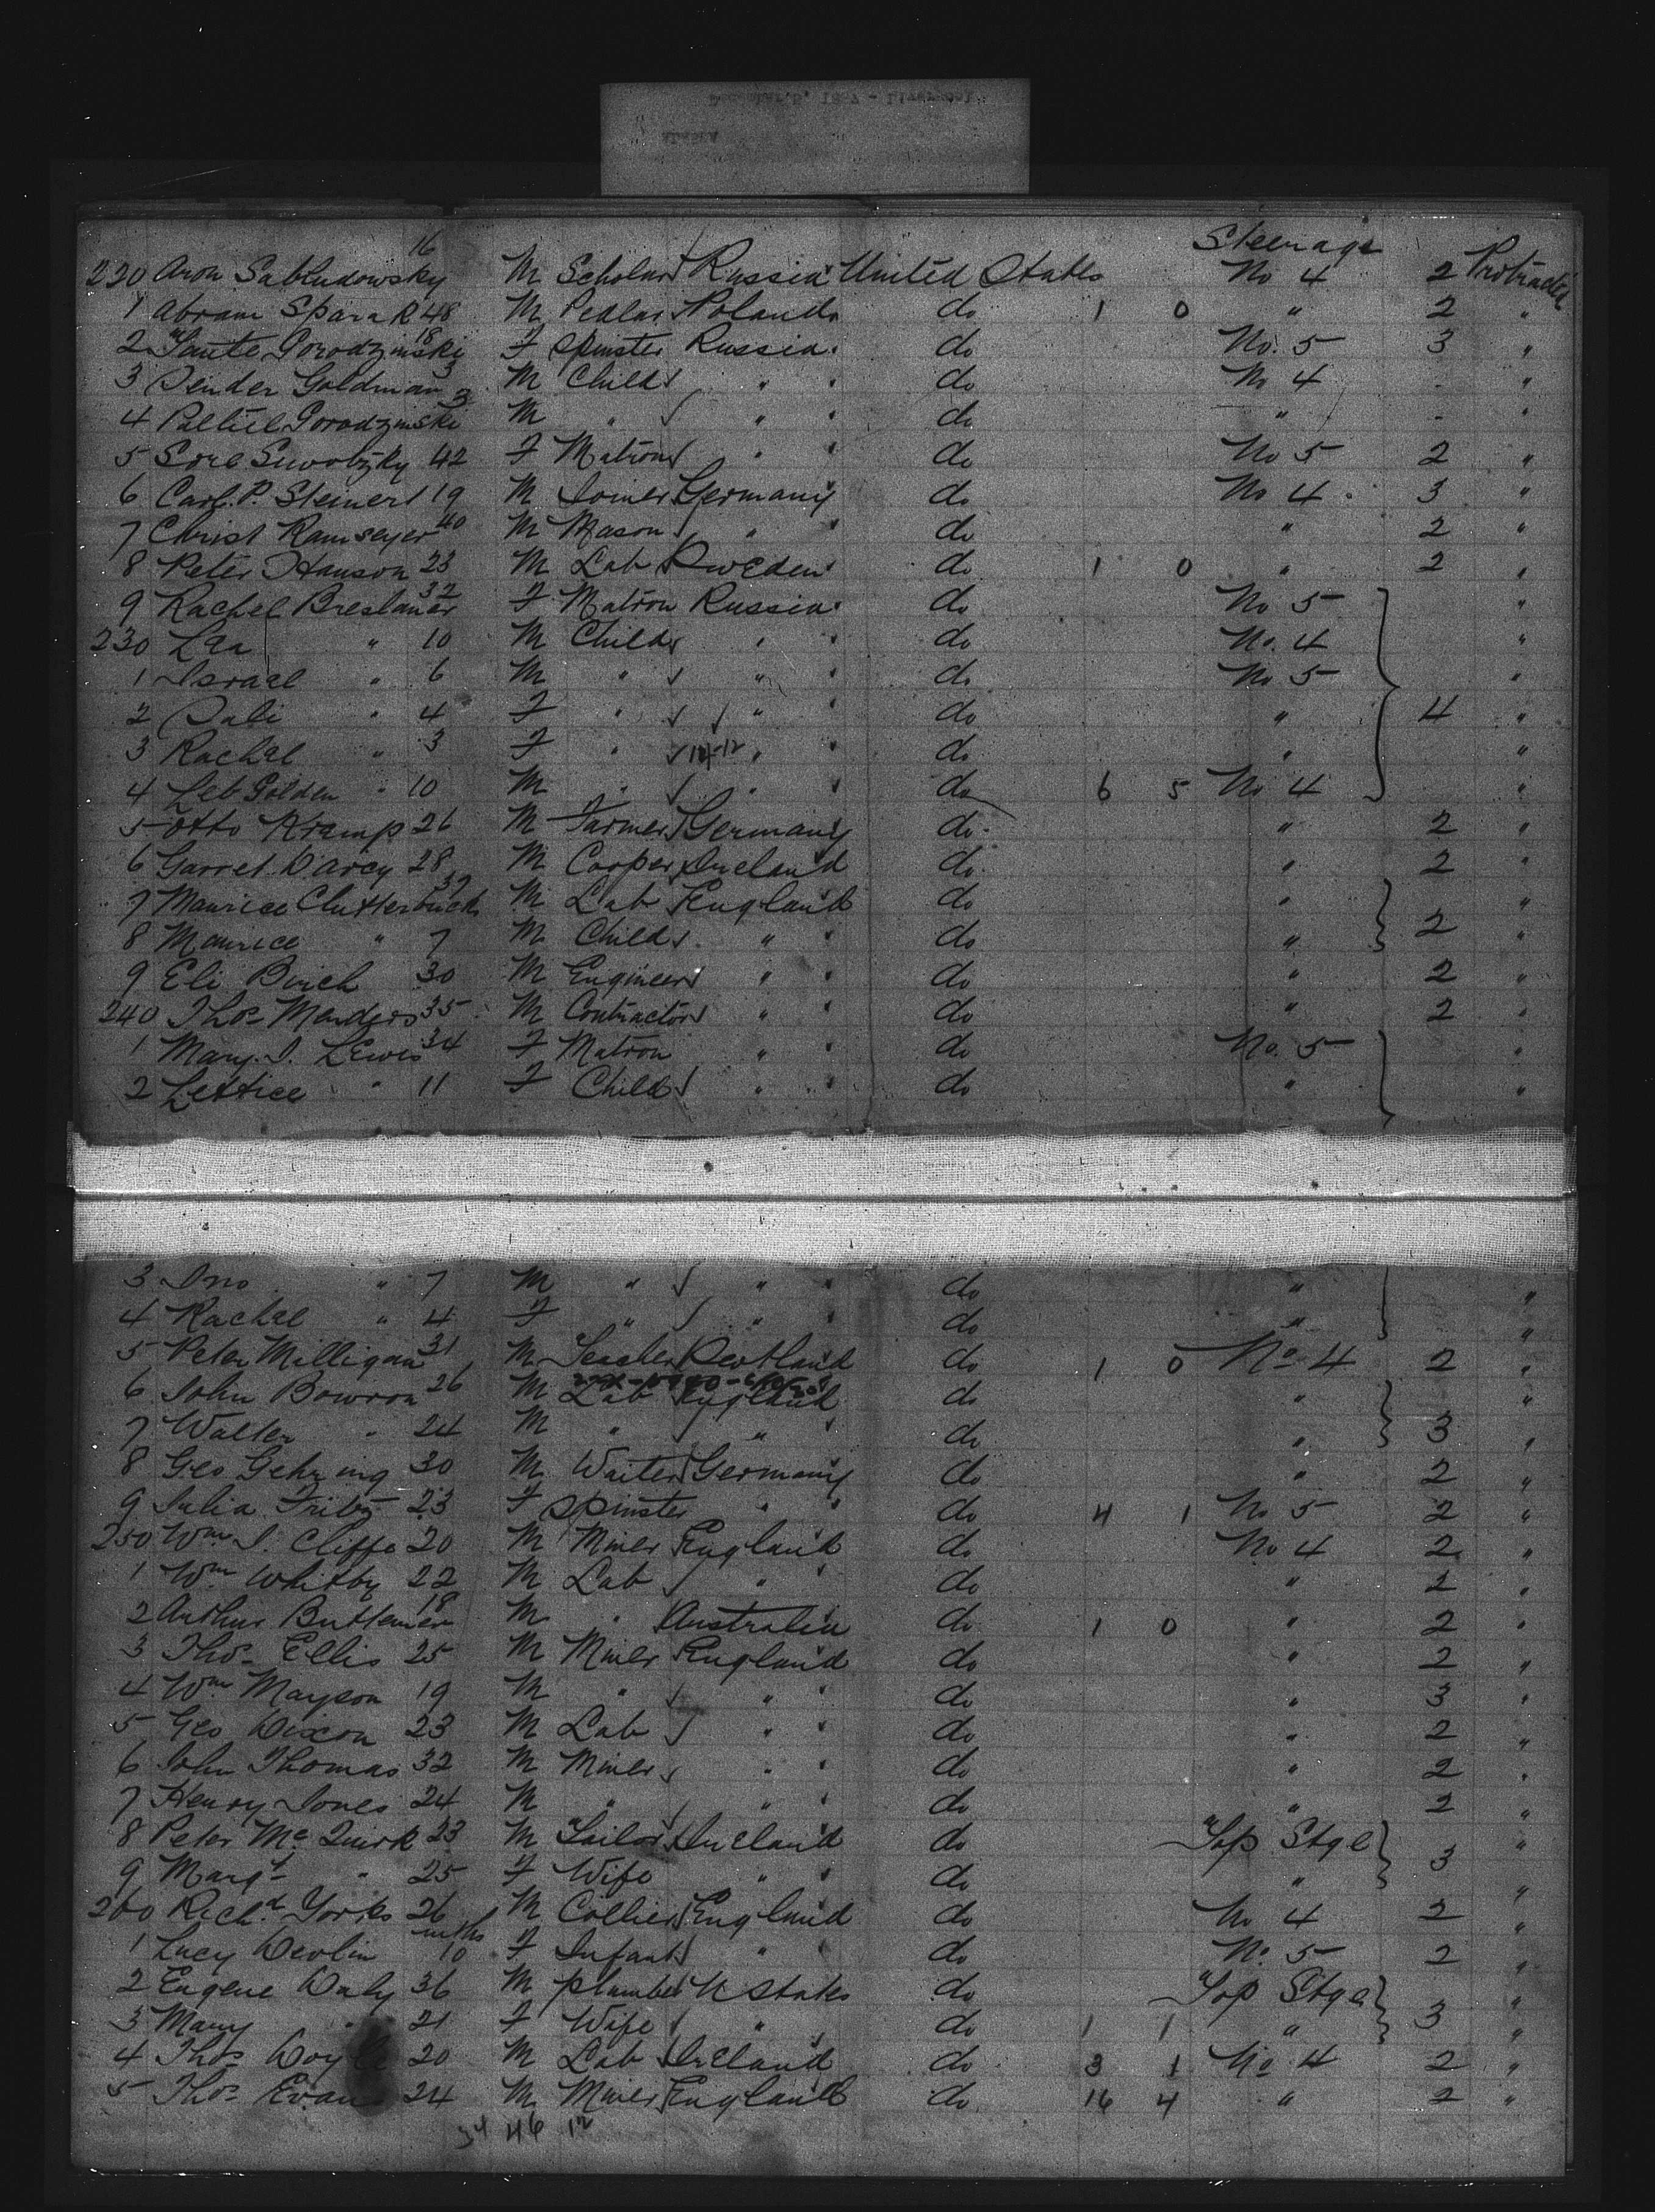 Steerage
220 Aron Sabludowsky 16 M Scholar Russia United States No 4 2 Protracted
1 Abram Sparak 48 M Pedlar Poland do 1 0 " 2 "
2 Taute Gorodzinski 18 F Spinster Russia do No. 5 3 "
3 Sender Goldman 3 M Child " " do No 4 - "
4 Paltiel Gorodzinski 3 M " " " do " - "
5 Sore Suvolzky 42 F Matron " " do No 5 2 "
6 Carl. P. Steinert 19 M Joiner Germany do No 4 3 "
7 Christ Ramseyer 40 M Mason " " do " 2 "
8 Peter Hanson 23 M Lab Sweden do 1 0 " 2 "
9 Rachel Breslauer 32 F Matron Russia do No 5 "
230 Lea " 10 M Child " " do No. 4 "
1 Israel " 6 M " " " do No 5 "
2 Sali " 4 F " " " do " 4 "
3 Rachel " 3 F " 14-12 " " do " "
4 Leb Golden " 10 M " " " do 6 5 No 4 "
5 Otto Kramp 26 M Farmer Germany do " 2 "
6 Garret Darcy 28 M Cooper Ireland do " 2 "
7 Maurice Clutterbuck 37 M Lab England do " "
8 Maurice " 7 M Child " " do " 2 "
9 Eli Birch 30 M Engineer " " do " 2 "
240 Thos Menders 35 M Contractor " " do " 2 "
1 Mary. J. Lewis 34 F Matron " " do No. 5 "
2 Lettice " 11 F Child " " do " "
3 Jno " 7 M " " " do " "
4 Rachel " 4 F " " " do " "
5 Peter Milligan 31 M Teacher Scotland do 1 0 No 4 2 "
6 John Bowron 26 M Lab England do " "
7 Walter " 24 M " " " do " 3 "
8 Geo Gehring 30 M Waiter Germany do " 2 "
9 Julia Fribz 23 F Spinster " " do 4 1 No 5 2 "
250 Wm J. Cliffe 20 M Miner England do No 4 2 "
1 Wm Whitby 22 M Lab " " do " 2 "
2 Arthur Buttemer 18 M " Australia do 1 0 " 2 "
3 Thos Ellis 25 M Miner England do " 2 "
4 Wm Mayson 19 M " " " do " 3 "
5 Geo Dixon 23 M Lab " " do " 2 "
6 John Thomas 32 M Miner " " do " 2 "
7 Henry Jones 24 M " " " do " 2 "
8 Peter Mc Quirk 23 M Tailor Ireland do Top Stge "
9 Margt " 25 F Wife " " do " 3 "
260 Richd Yorks 26 M Collier England do No 4 2 "
1 Lucy Devlin mths 10 F Infant " " do No. 5 2 "
2 Eugene Daly 36 M Plumber U States do Top Stge "
3 Mary " 21 F Wife " " do 1 1 " 3 "
4 Thos Doyle 20 M Lab Ireland do 3 1 No 4 2 "
5 Thos Evans 24 M Miner England do 16 4 " 2 "
34 46 12